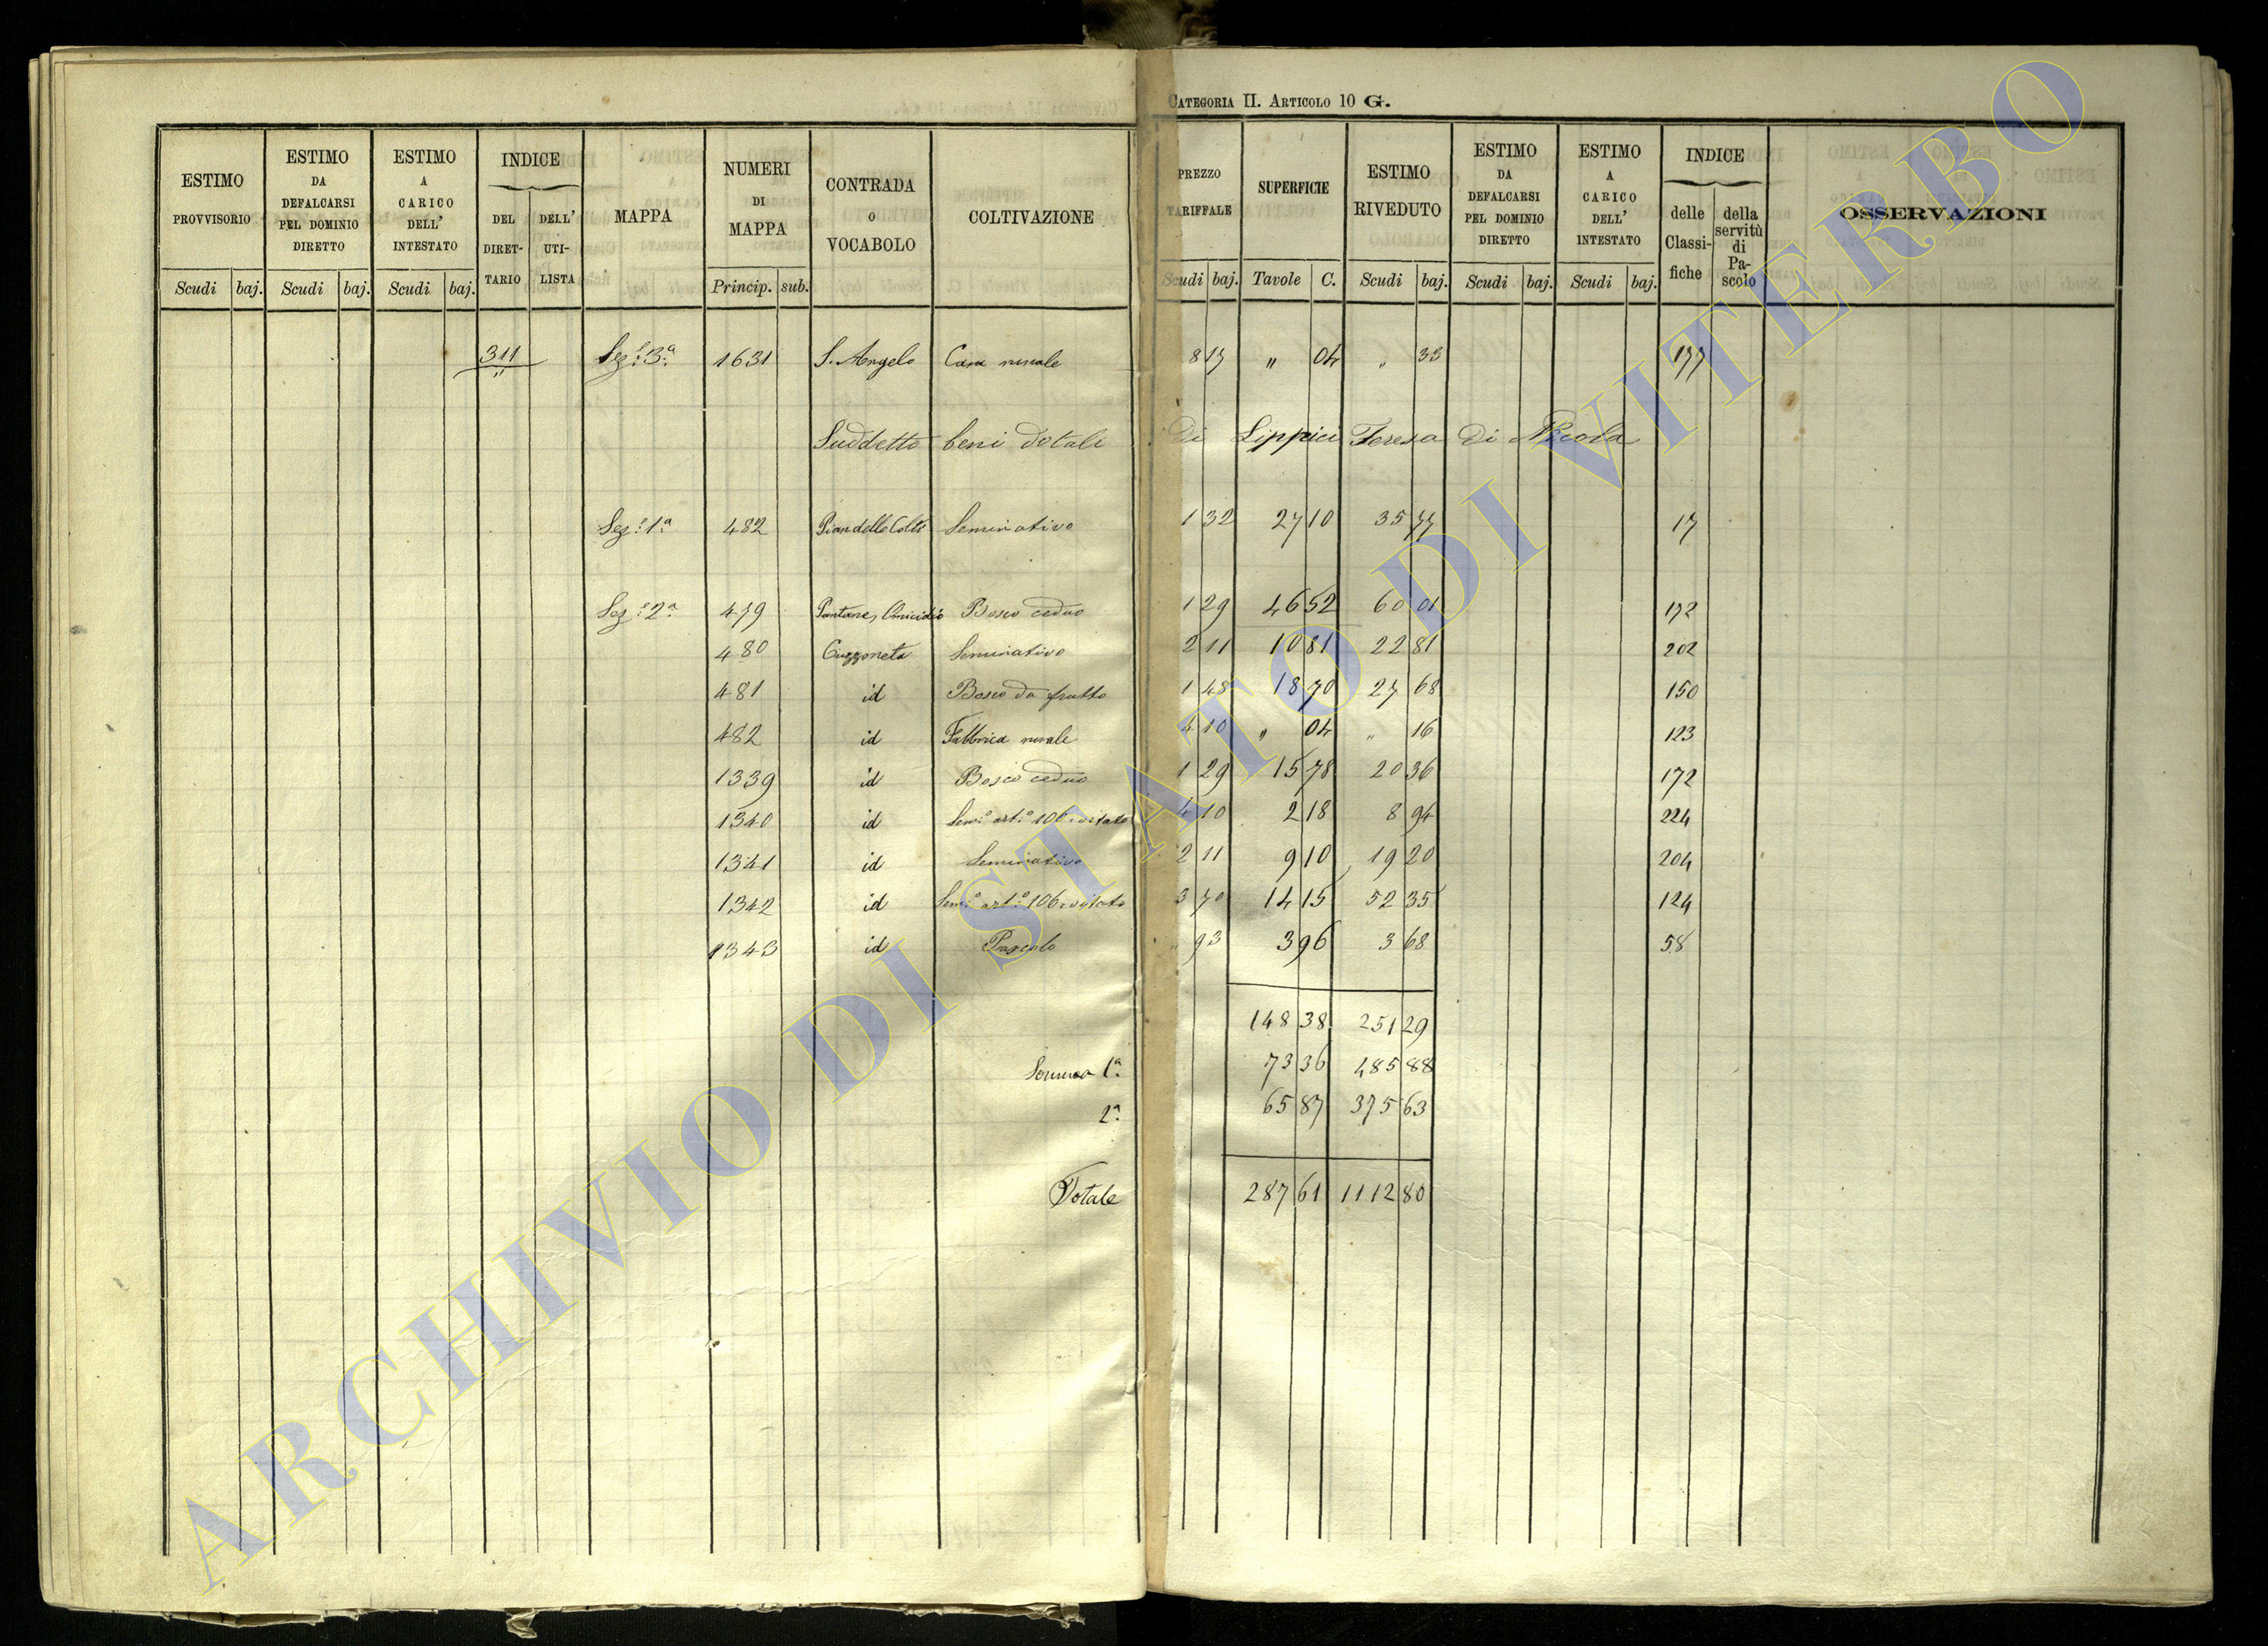 CATEGORIA II. ARTICOLO 10 G.
ESTIMO PROVVISORIO Scudi baj.
ESTIMO DA DEFALCARSI PEL DOMINIO DIRETTO Scudi baj.
ESTIMO A CARICO DELL' INTESTATO Scudi baj.
INDICE DEL DIRETTARIO DELL' UTILISTA
MAPPA
NUMERI DI MAPPA Princip. sub.
CONTRADA O VOCABOLO
COLTIVAZIONE
PREZZO TARIFFALE Scudi baj.
SUPERFICIE Tavole C.
ESTIMO RIVEDUTO Scudi baj.
ESTIMO DA DEFALCARSI PEL DOMINIO DIRETTO Scudi baj.
ESTIMO A CARICO DELL' INTESTATO Scudi baj.
INDICE delle Classifiche della servitù di Pascolo
OSSERVAZIONI
311 " Sez.e 3.a 1631 S. Angelo Casa rurale 8 17 " 04 " 33 177
Suddetto beni dotali di Lippici Teresa di Nicola
Sez.e 1.a 482 Pian delle Colle Seminativo 1 32 27 10 35 77 17
Sez.e 2.a 479 Bosco ceduo 1 29 46 52 60 01 172
480 Cuzzoneta Seminativo 2 11 10 81 22 81 202
481 id Bosco da frutto 1 48 18 70 27 68 150
482 id Fabbrica rurale 4 10 " 04 " 16 123
1339 id Bosco ceduo 1 29 15 78 20 36 172
1340 id Sem.o art.o 106 vitato 4 10 2 18 8 94 224
1341 id Seminativo 2 11 9 10 19 20 204
1342 id Sem.o art.o 106 vitato 3 70 14 15 52 35 124
1343 id Pascolo " 93 3 96 3 68 58
148 38 251 29
Somma 1.a 73 36 485 88
2.a 65 87 375 63
Totale 287 61 1112 80
ARCHIVIO DI STATO DI VITERBO